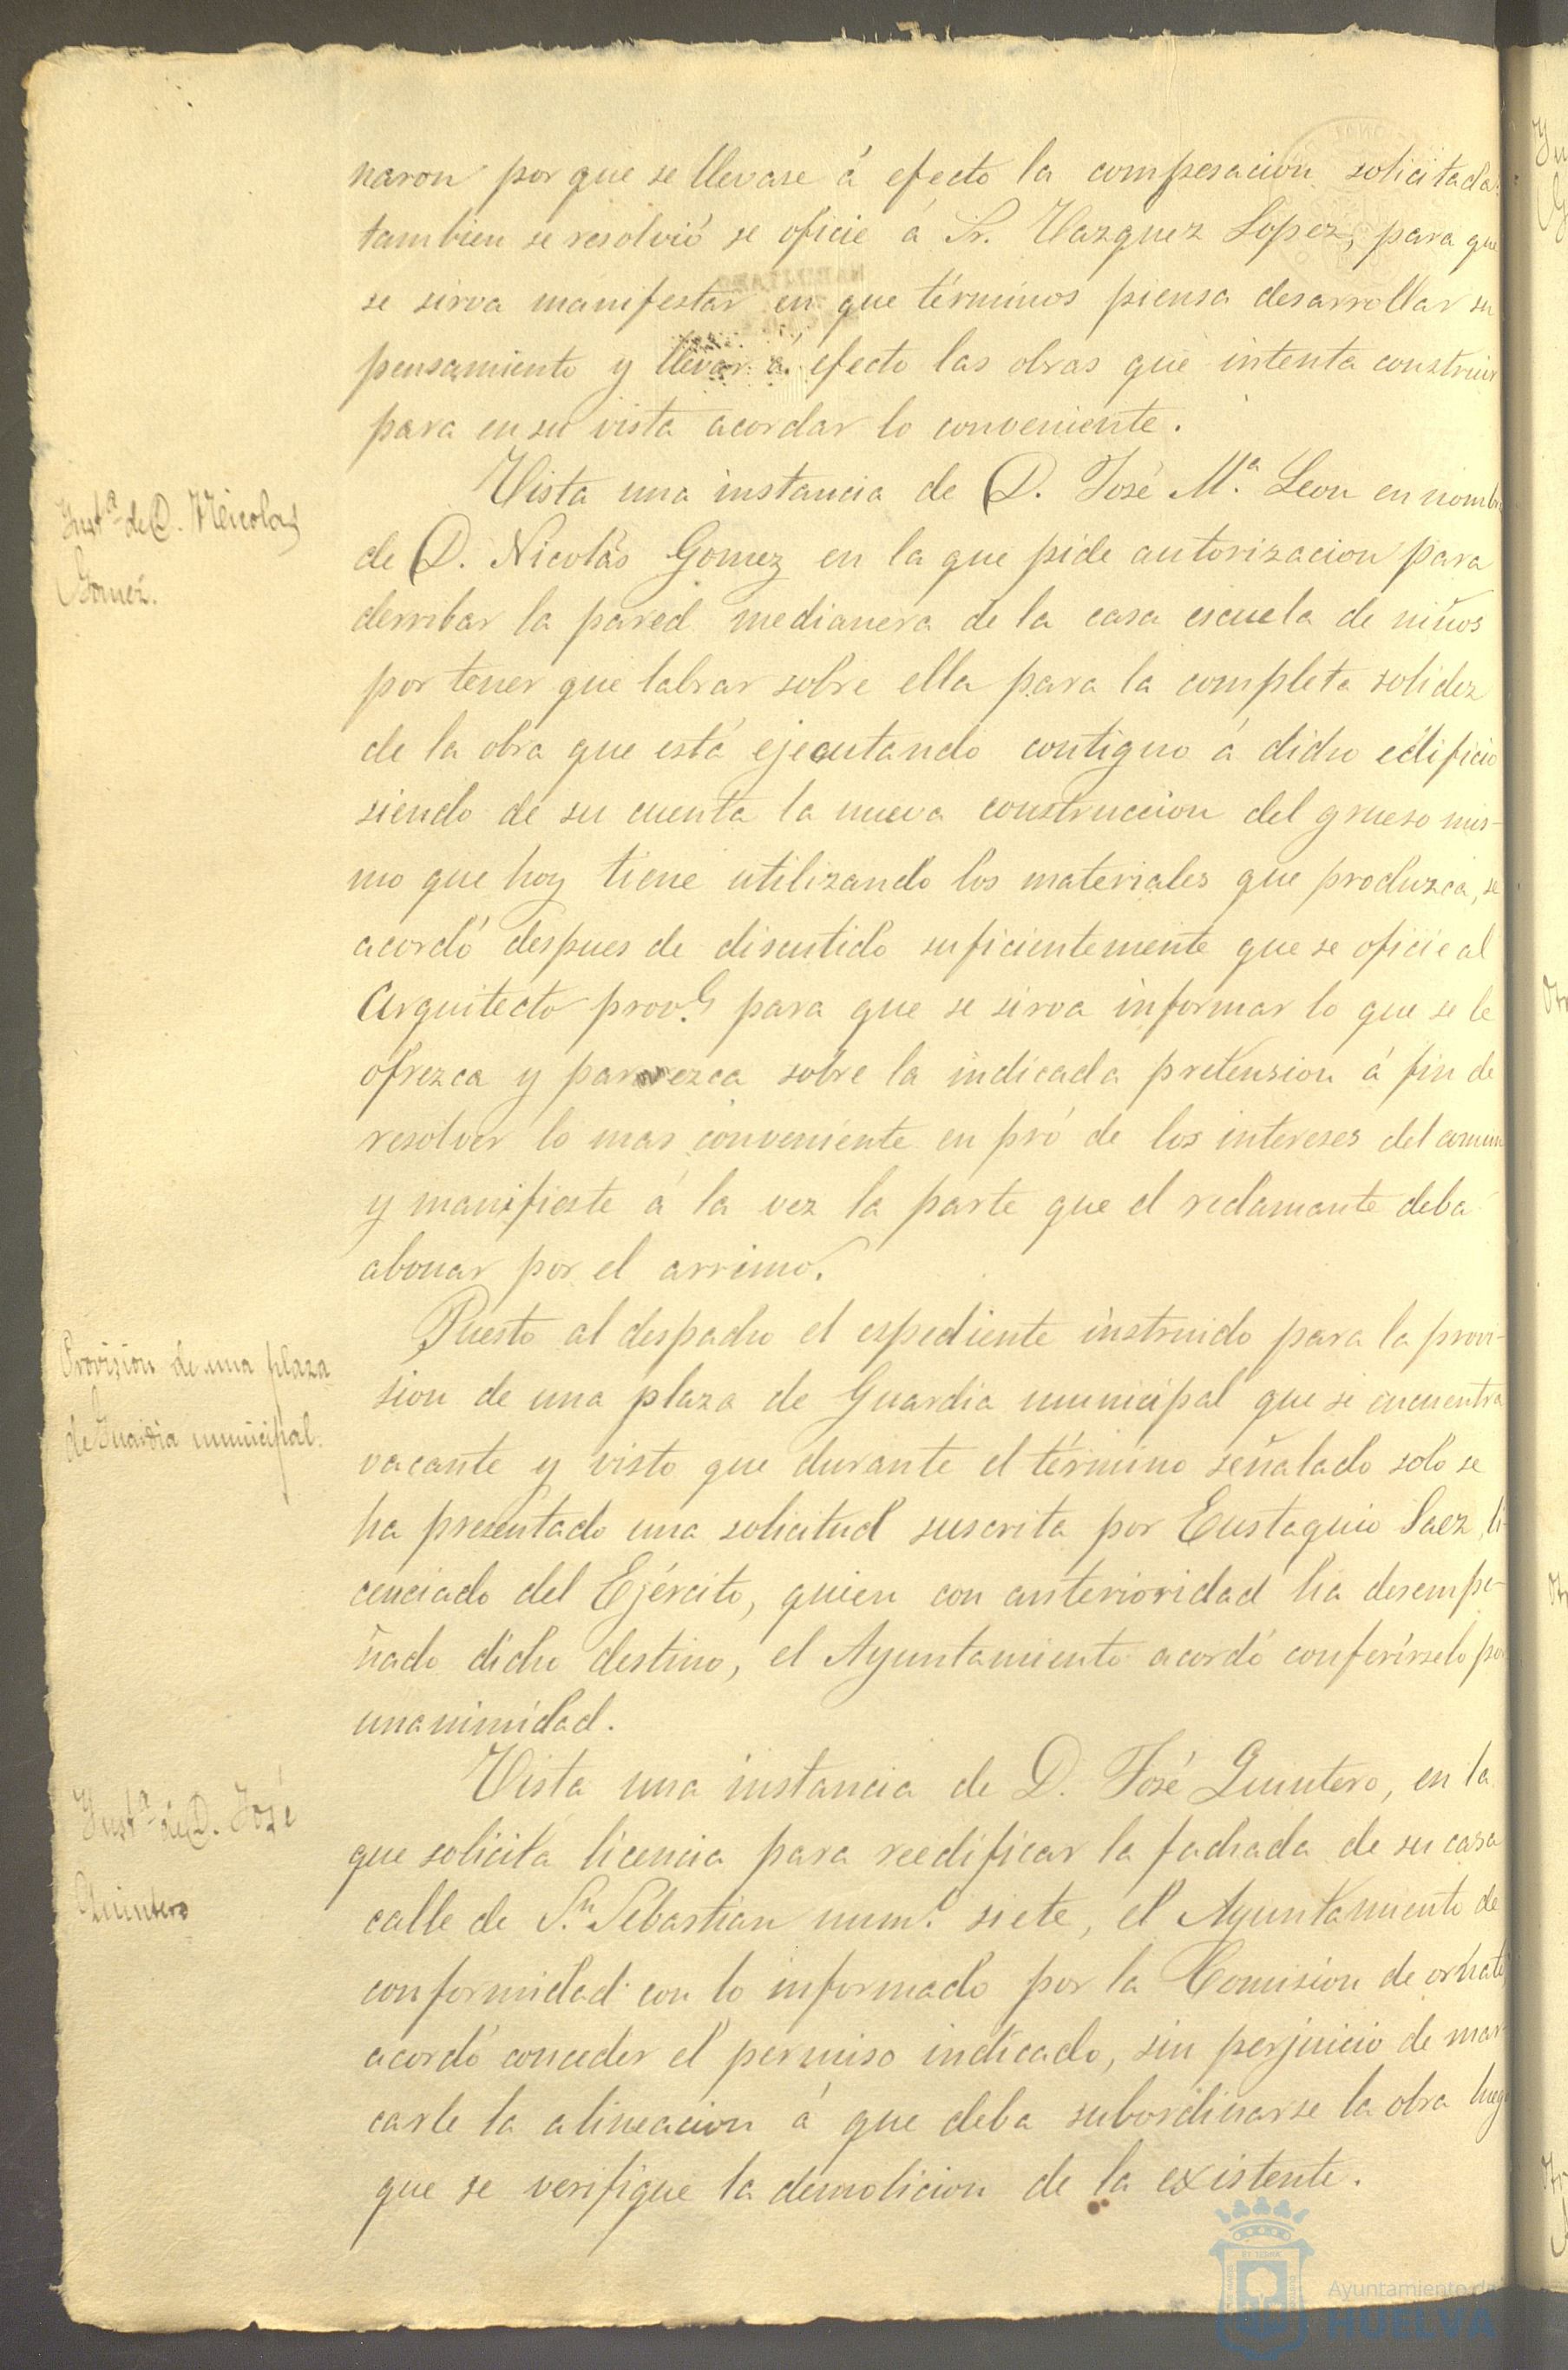 naron por que se llevase á efecto la compesacion solicitada:
tambien se resolvió se oficie á Sr. Vazquez Lopez, para que
se sirva manifestar en que términos piensa desarrollar su
pensamiento y llevar á efecto las obras que intenta construir
para en su vista acordar lo conveniente.
Inst.ª de D. Neicolas
Gomez.
Vista una instancia de D. José M.ª Leon en nombre
de D. Nicolás Gomez en la que pide autorizacion para
derribar la pared medianera de la casa escuela de niños
por tener que labrar sobre ella para la completa solidez
de la obra que está ejecutando contiguo á dicho edificio
siendo de su cuenta la nueva construccion del grueso mis-
mo que hoy tiene utilizando los materiales que produzca, se
acordó despues de discutido suficientemente que se oficie al
Arquitecto prov.l para que se sirva informar lo que se le
ofrezca y parezca sobre la indicada pretension á fin de
resolver lo mas conveniente en pró de los intereses del comun
y manifieste á la vez la parte que el reclamante deba
abonar por el arrimo.
Provision de una plaza
de Guardia municipal.
Puesto al despacho el espediente instruido para la provi-
sion de una plaza de Guardia municipal que se encuentra
vacante y visto que durante el término señalado solo se
ha presentado una solicitud suscrita por Eustaquio Saez, li-
cenciado del Ejército, quien con anterioridad ha desempe-
ñado dicho destino, el Ayuntamiento acordó conferírselo por
unanimidad.
Inst.ª de D. José
Quintero
Vista una instancia de D. José Quintero, en la
que solicita licencia para reedificar la fachada de su casa
calle de S.n Sebastian num.o siete, el Ayuntamiento de
conformidad con lo informado por la Comision de ornato
acordó conceder el permiso indicado, sin perjuicio de mar
carle la alineacion á que deba subordinarse la obra luego
que se verifique la demolicion de la existente.
Ayuntamiento de
HUELVA